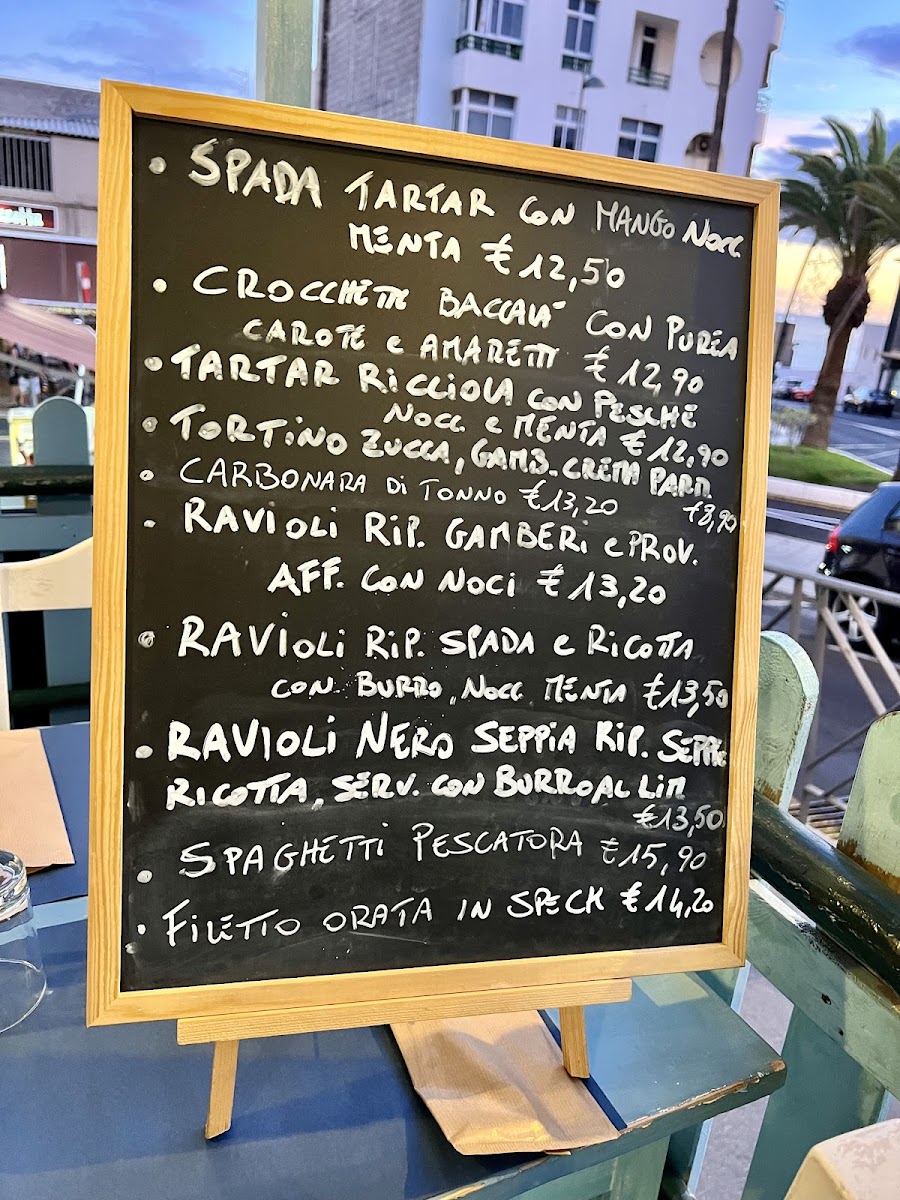 • SPADA TARTAR CON MANGO NOCC.
MENTA € 12,50
• CROCCHETTE BACCALA' CON PUREA
CAROTE e AMARETTI € 12,90
• TARTAR RICCIOLA CON PESCHE
NOCC. e MENTA € 12,90
• TORTINO ZUCCA, GAMB. CREMA PARM.
€8,90
• CARBONARA Di TONNO €13,20
• RAViOLi RiP. GAMBERi e PROV.
AFF. CON NOCi € 13,20
• RAViOLi RiP. SPADA e RiCOTTA
CON BURRO, NOCC. MENTA €13,50
• RAVIOLi NERO SEPPiA RiP. SEPPIE
RICOTTA, SERV. CON BURRO AL LIM
€13,50
• SPAGHETTi PESCATORA €15,90
• FILETTO ORATA IN SPECK €14,20